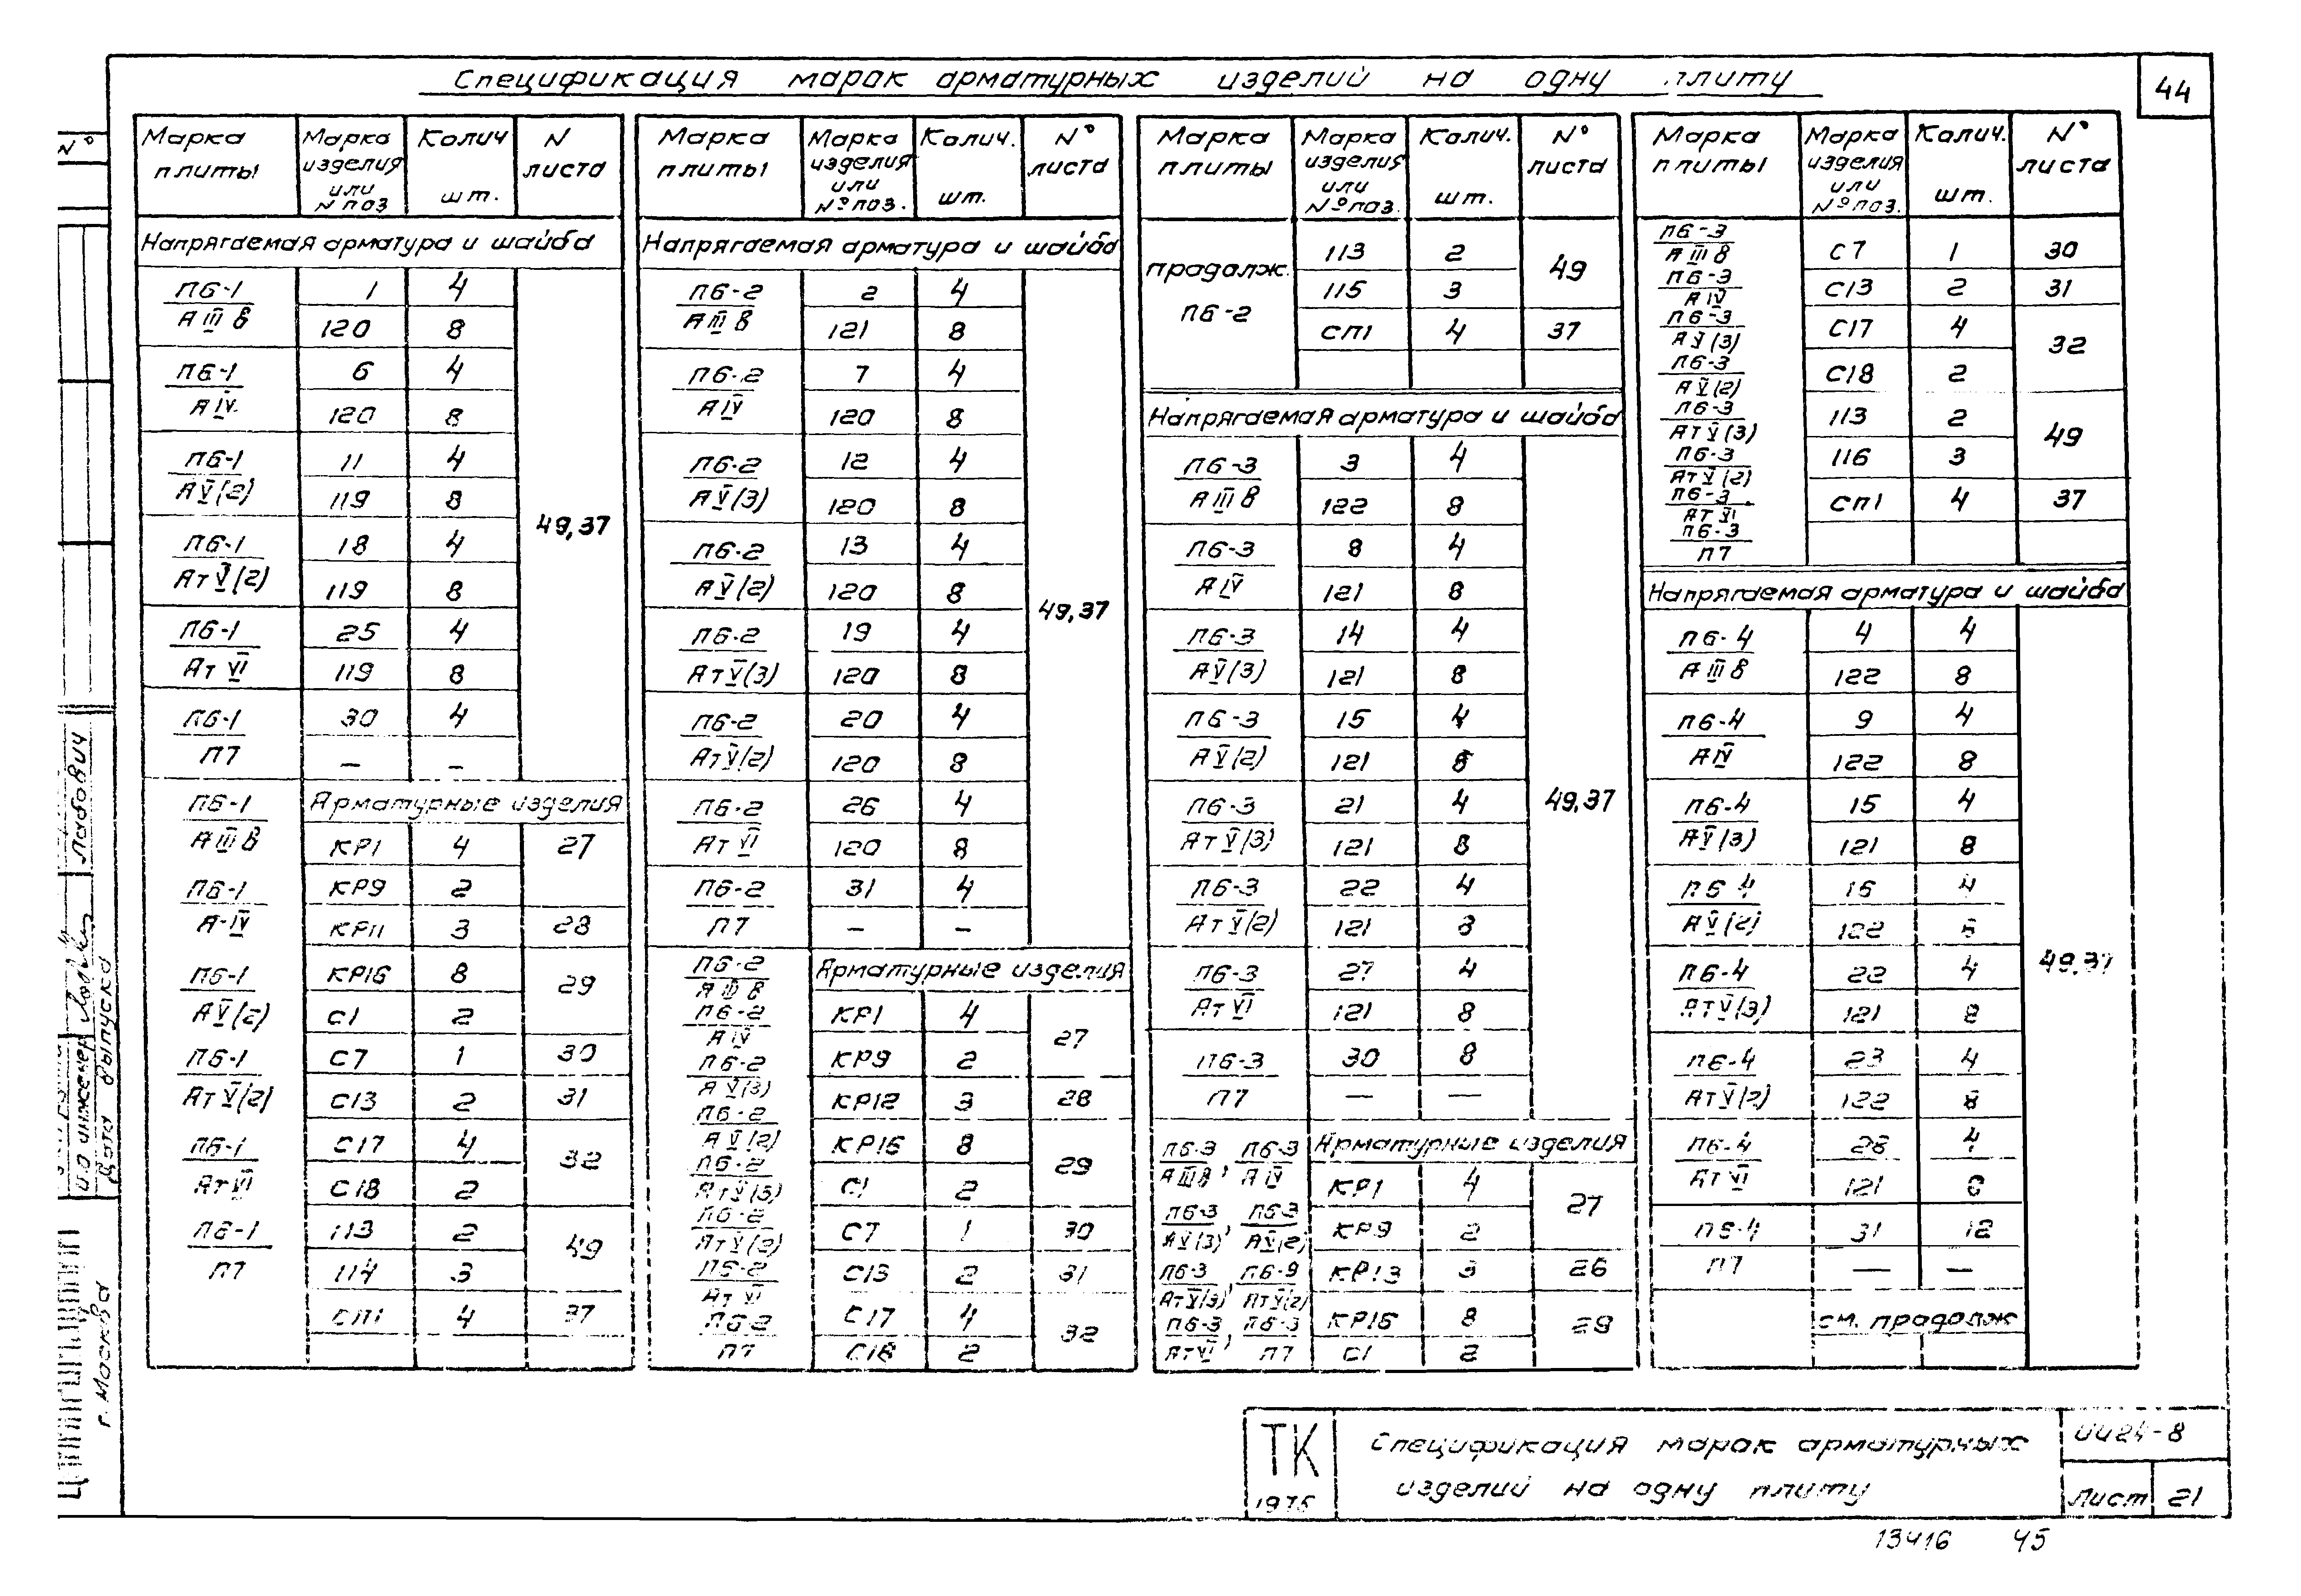 Спецификация марок арматурных изделий на одну плиту
44
Марка плиты | Марка изделия или N поз | Колич шт. | N листа
Напрягаемая арматура и шайба
П6-1/АIIIв | 1 | 4 | 49,37
120 | 8
П6-1/АIV | 6 | 4
120 | 8
П6-1/АV(2) | 11 | 4
119 | 8
П6-1/АтV(2) | 18 | 4
119 | 8
П6-1/АтVI | 25 | 4
119 | 8
П6-1/П7 | 30 | 4
— | –
Арматурные изделия
П6-1/АIIIв
П6-1/А-IV
П6-1/АV(2)
П6-1/АтV(2)
П6-1/АтVI
П6-1/П7
КР1 | 4 | 27
КР9 | 2
КР11 | 3 | 28
КР16 | 8 | 29
С1 | 2
С7 | 1 | 30
С13 | 2 | 31
С17 | 4 | 32
С18 | 2
113 | 2 | 49
114 | 3
СП1 | 4 | 37
Марка плиты | Марка изделия или Nº поз. | Колич. шт. | Nº листа
Напрягаемая арматура и шайба
П6-2/АIIIв | 2 | 4 | 49,37
121 | 8
П6-2/АIV | 7 | 4
120 | 8
П6-2/АV(3) | 12 | 4
120 | 8
П6-2/АV(2) | 13 | 4
120 | 8
П6-2/АтV(3) | 19 | 4
120 | 8
П6-2/АтV(2) | 20 | 4
120 | 8
П6-2/АтVI | 26 | 4
120 | 8
П6-2/П7 | 31 | 4
— | –
Арматурные изделия
П6-2/АIIIв
П6-2/АIV
П6-2/АV(3)
П6-2/АV(2)
П6-2/АтV(3)
П6-2/АтV(2)
П6-2/АтVI
П6-2/П7
КР1 | 4 | 27
КР9 | 2
КР12 | 3 | 28
КР16 | 8 | 29
С1 | 2
С7 | 1 | 30
С13 | 2 | 31
С17 | 4 | 32
С18 | 2
Марка плиты | Марка изделия или Nº поз. | Колич. шт. | Nº листа
продолж. П6-2 | 113 | 2 | 49
115 | 3
СП1 | 4 | 37
Напрягаемая арматура и шайба
П6-3/АIIIв | 3 | 4 | 49,37
122 | 8
П6-3/АIV | 8 | 4
121 | 8
П6-3/АV(3) | 14 | 4
121 | 8
П6-3/АV(2) | 15 | 4
121 | 8
П6-3/АтV(3) | 21 | 4
121 | 8
П6-3/АтV(2) | 22 | 4
121 | 8
П6-3/АтVI | 27 | 4
121 | 8
П6-3/П7 | 30 | 8
— | —
Арматурные изделия
П6-3/АIIIв, П6-3/АIV
П6-3/АV(3), П6-3/АV(2)
П6-3/АтV(3), П6-9/АтV(2)
П6-3/АтVI, П6-3/П7
КР1 | 4 | 27
КР9 | 2
КР13 | 3 | 26
КР16 | 8 | 29
С1 | 2
Марка плиты | Марка изделия или Nº поз. | Колич. шт. | Nº листа
П6-3/АIIIв
П6-3/АIV
П6-3/АV(3)
П6-3/АV(2)
П6-3/АтV(3)
П6-3/АтV(2)
П6-3/АтVI
П6-3/П7
С7 | 1 | 30
С13 | 2 | 31
С17 | 4 | 32
С18 | 2
113 | 2 | 49
116 | 3
СП1 | 4 | 37
Напрягаемая арматура и шайба
П6-4/АIIIв | 4 | 4 | 49,37
122 | 8
П6-4/АIV | 9 | 4
122 | 8
П6-4/АV(3) | 15 | 4
121 | 8
П6-4/АV(2) | 16 | 4
122 | 8
П6-4/АтV(3) | 22 | 4
121 | 8
П6-4/АтV(2) | 23 | 4
122 | 8
П6-4/АтVI | 28 | 4
121 | 8
П6-4/П7 | 31 | 12
— | —
см. продолж
Nº
Лабович
инженер
Дата выпуска
г. Москва
ТК
1975
Спецификация марок арматурных
изделий на одну плиту
ИИ24-8
Лист 21
13416 45